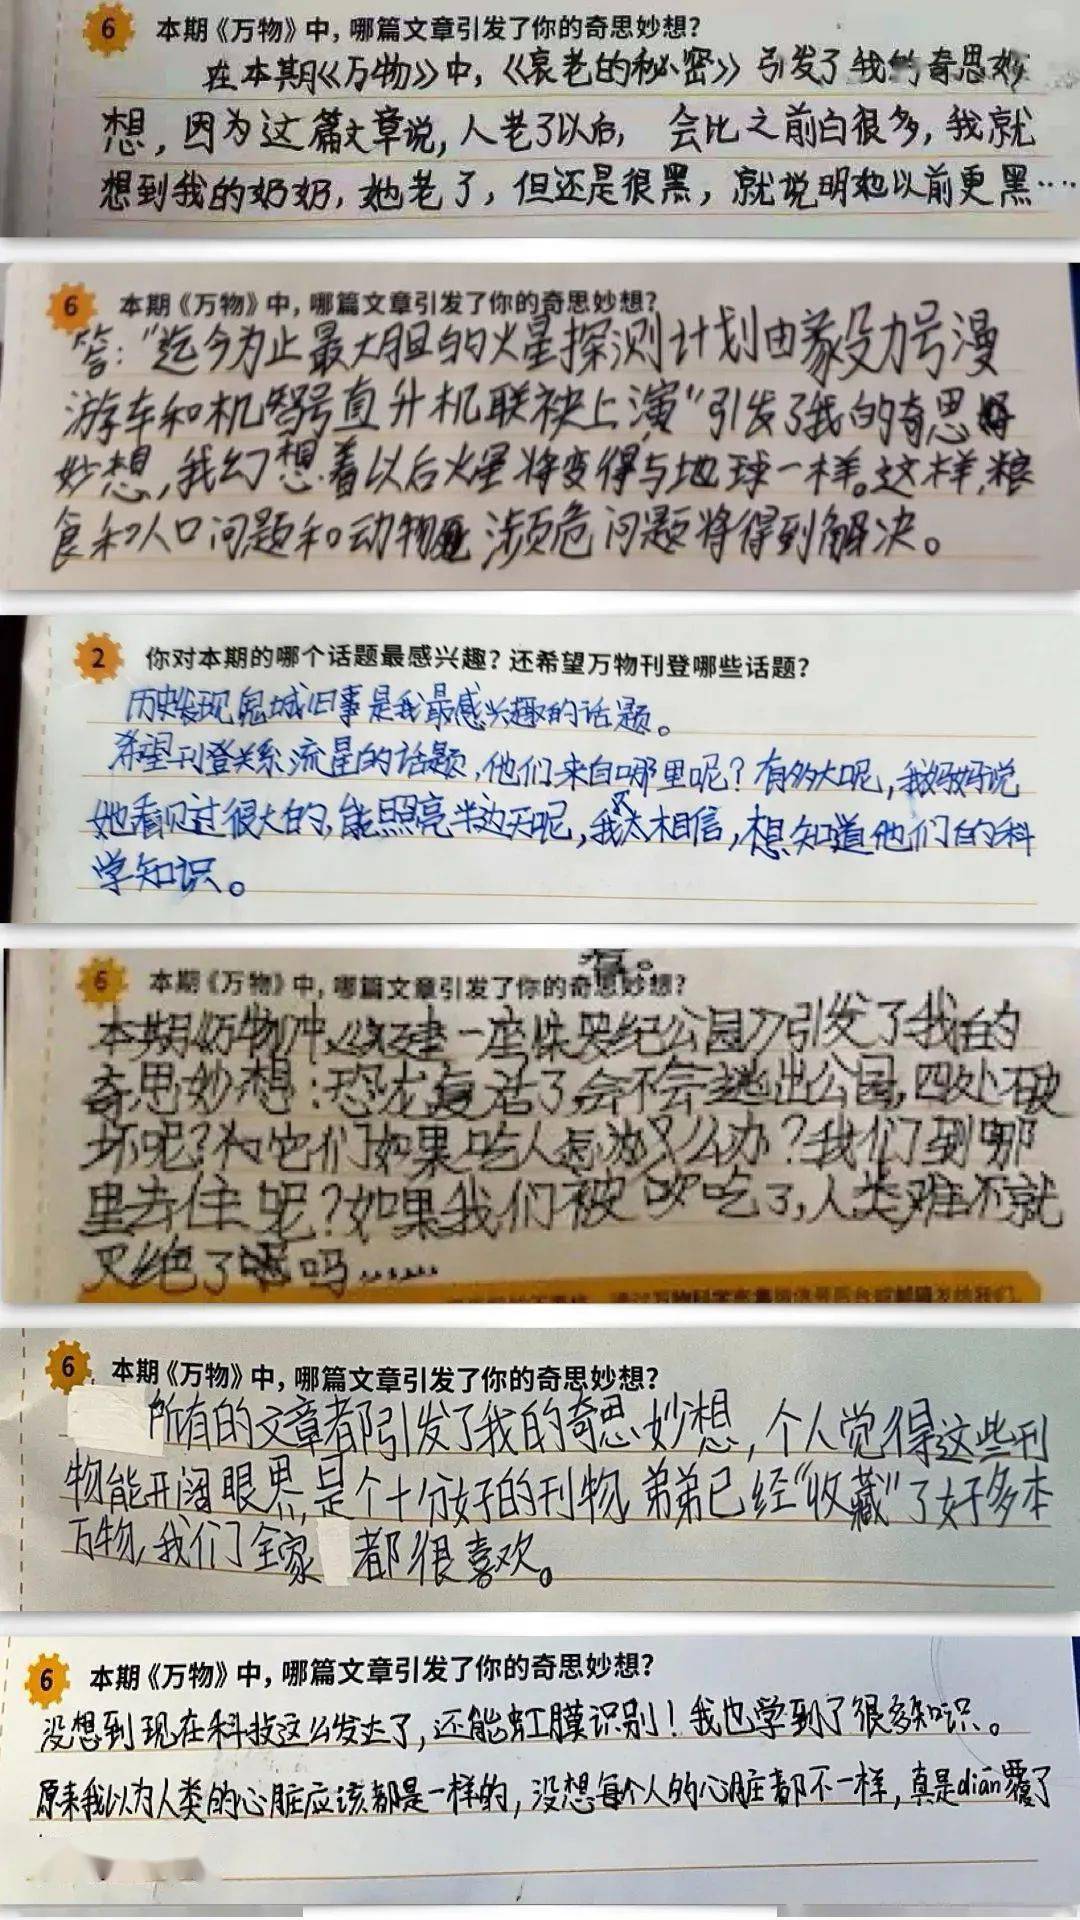 6 本期《万物》中，哪篇文章引发了你的奇思妙想？
在本期《万物》中，《衰老的秘密》引发了我的奇思妙
想，因为这篇文章说，人老了以后，会比之前白很多，我就
想到我的奶奶，她老了，但还是很黑，就说明她以前更黑……
6 本期《万物》中，哪篇文章引发了你的奇思妙想？
答：“迄今为止最大胆的火星探测计划由毅力号漫
游车和机智号直升机联袂上演”引发了我的奇思
妙想，我幻想着以后火星将变得与地球一样。这样，粮
食和人口问题和动物濒危问题将得到解决。
2 你对本期的哪个话题最感兴趣？还希望万物刊登哪些话题？
历史发现鬼城旧事是我最感兴趣的话题。
希望刊登关系流星的话题，他们来自哪里呢？有多大呢，我妈妈说
她看见过很大的，能照亮半边天呢，我不太相信，想知道他们的科
学知识。
6 本期《万物》中，哪篇文章引发了你的奇思妙想？
本期《万物》中，《建一座侏罗纪公园》引发了我的
奇思妙想：恐龙复活了，会不会逃出公园，四处破
坏呢？和它们如果吃人怎么办？我们到哪
里去住呢？如果我们被吃了，人类难不就
灭绝了吗……
6 本期《万物》中，哪篇文章引发了你的奇思妙想？
所有的文章都引发了我的奇思妙想，个人觉得这些刊
物能开阔眼界，是个十分好的刊物，弟弟已经“收藏”了好多本
万物，我们全家都很喜欢。
6 本期《万物》中，哪篇文章引发了你的奇思妙想？
没想到现在科技这么发达了，还能虹膜识别！我也学到了很多知识。
原来我以为人类的心脏应该都是一样的，没想每个人的心脏都不一样，真是diān覆了